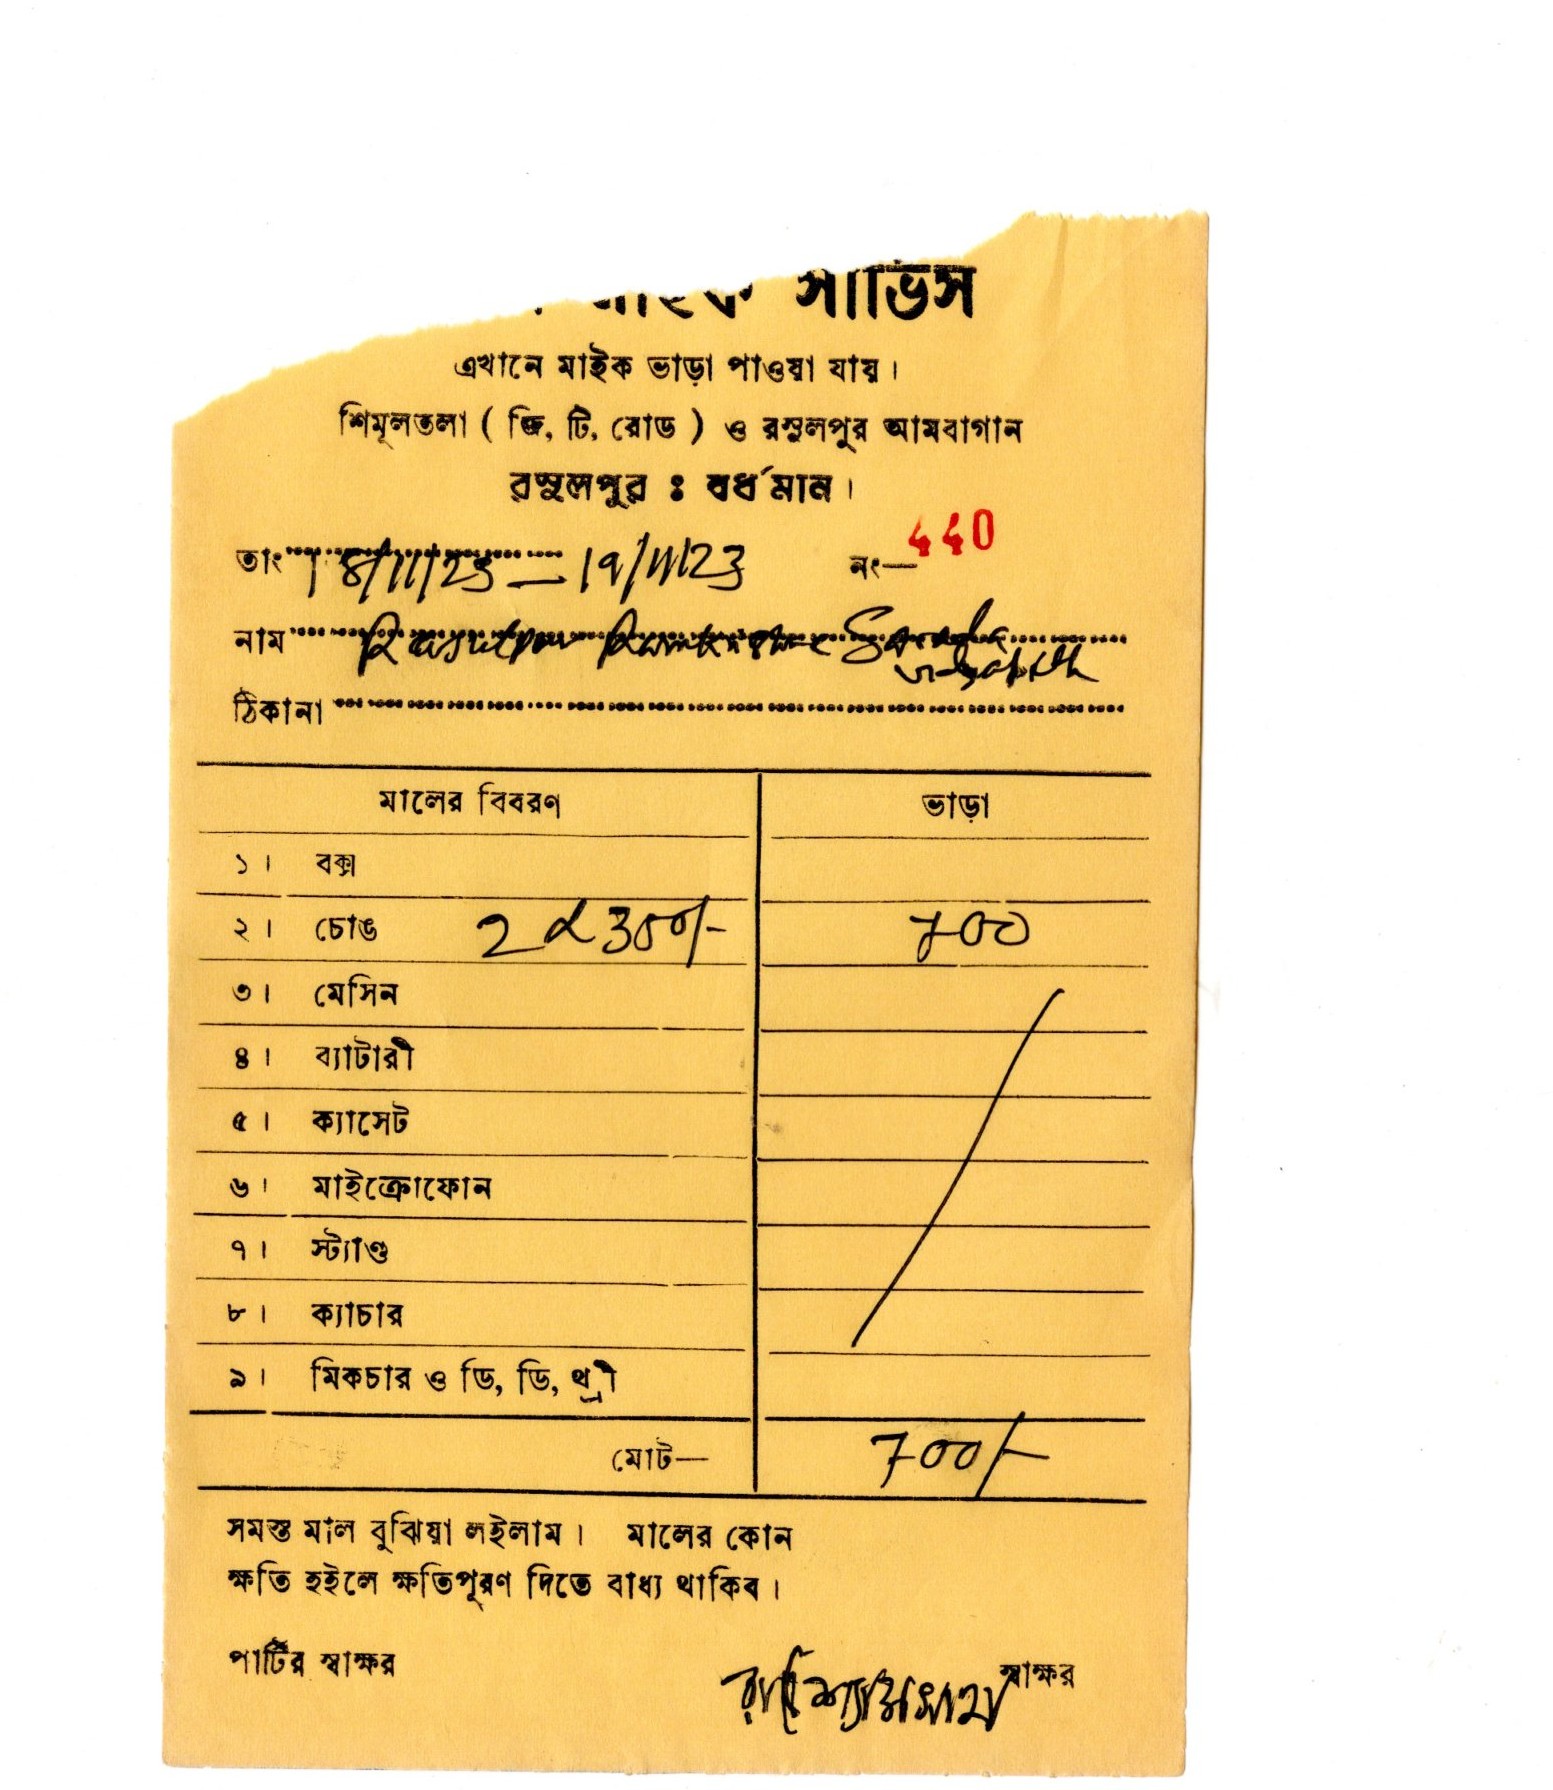 মাইক সার্ভিস
এখানে মাইক ভাড়া পাওয়া যায়।
শিমূলতলা ( জি, টি, রোড ) ও রসুলপুর আমবাগান
রসুলপুর : বর্ধমান।
তাং 18/11/23 — 19/11/23 নং— 440
নাম Rasulpur Ramkrishna Sarada
ঠিকানা
মালের বিবরণ ভাড়া
১। বক্স
২। চোঙ 2 300/- 700
৩। মেসিন
৪। ব্যাটারী
৫। ক্যাসেট
৬। মাইক্রোফোন
৭। স্ট্যাণ্ড
৮। ক্যাচার
৯। মিকচার ও ডি, ডি, থ্রী
মোট— 700/-
সমস্ত মাল বুঝিয়া লইলাম। মালের কোন
ক্ষতি হইলে ক্ষতিপূরণ দিতে বাধ্য থাকিব।
পার্টির স্বাক্ষর স্বাক্ষর